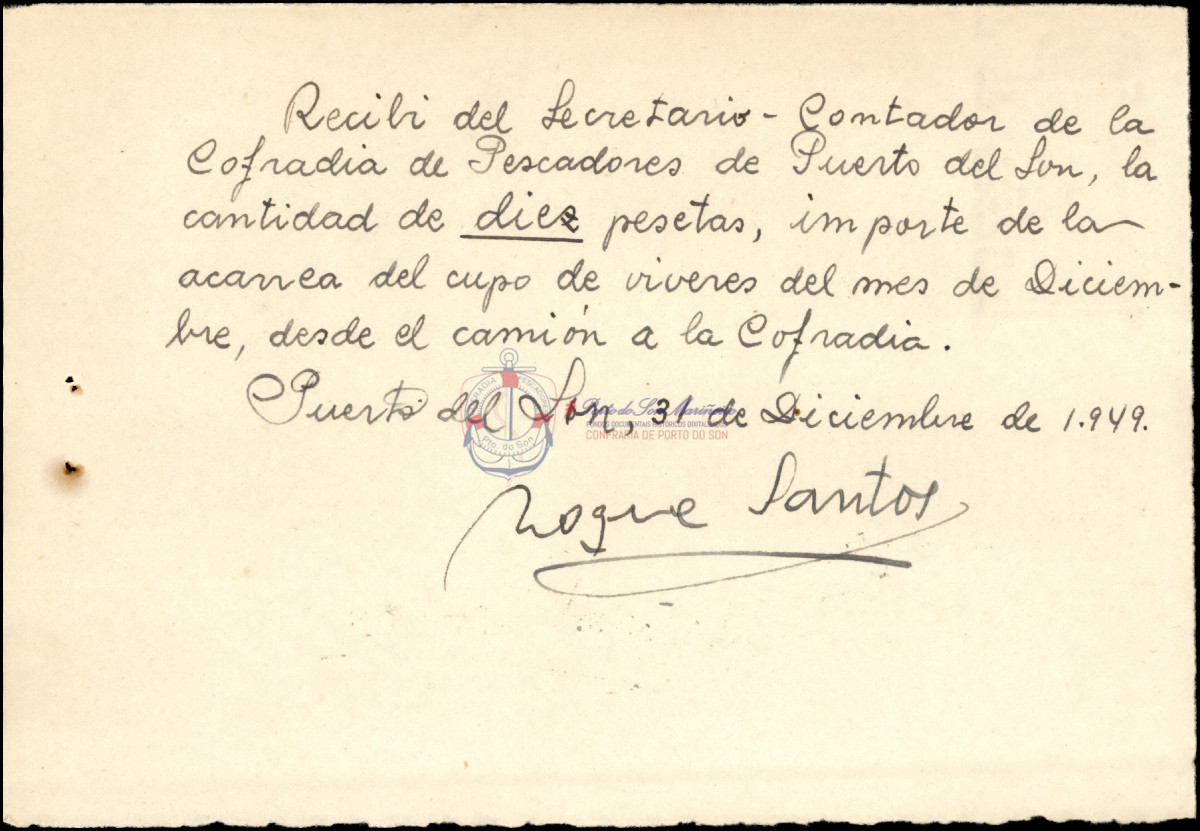 Recibi del Secretario - Contador de la
Cofradia de Pescadores de Puerto del Son, la
cantidad de diez pesetas, importe de la
acarrea del cupo de viveres del mes de Diciem-
bre, desde el camión a la Cofradia.
Puerto del Son, 31 de Diciembre de 1.949.
Roque Santos
COFRADIA PESCADORES
Pto. do Son
Porto do Son Mariñeiro
FONDOS DOCUMENTAIS HISTÓRICOS DIXITALIZADOS
CONFRARÍA DE PORTO DO SON